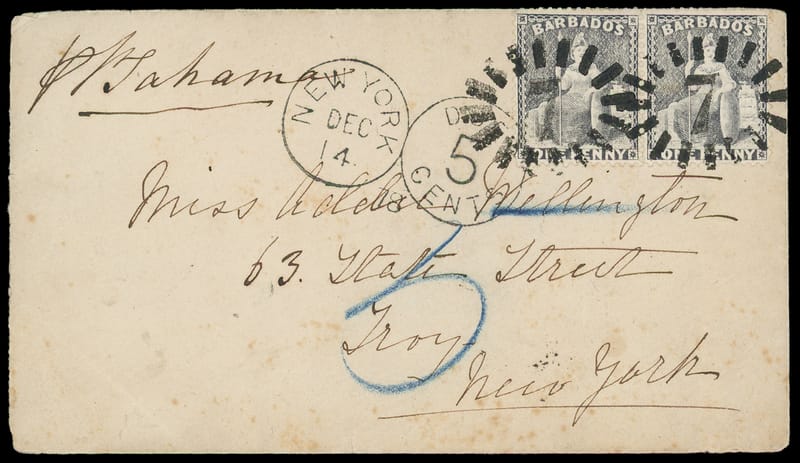 BARBADOS BARBADOS
7 7
ONE PENNY ONE PENNY
p Bahama
NEW YORK
DEC
14
5
CENTS
Miss Addie Wellington
63. State Street
Troy
New York
5